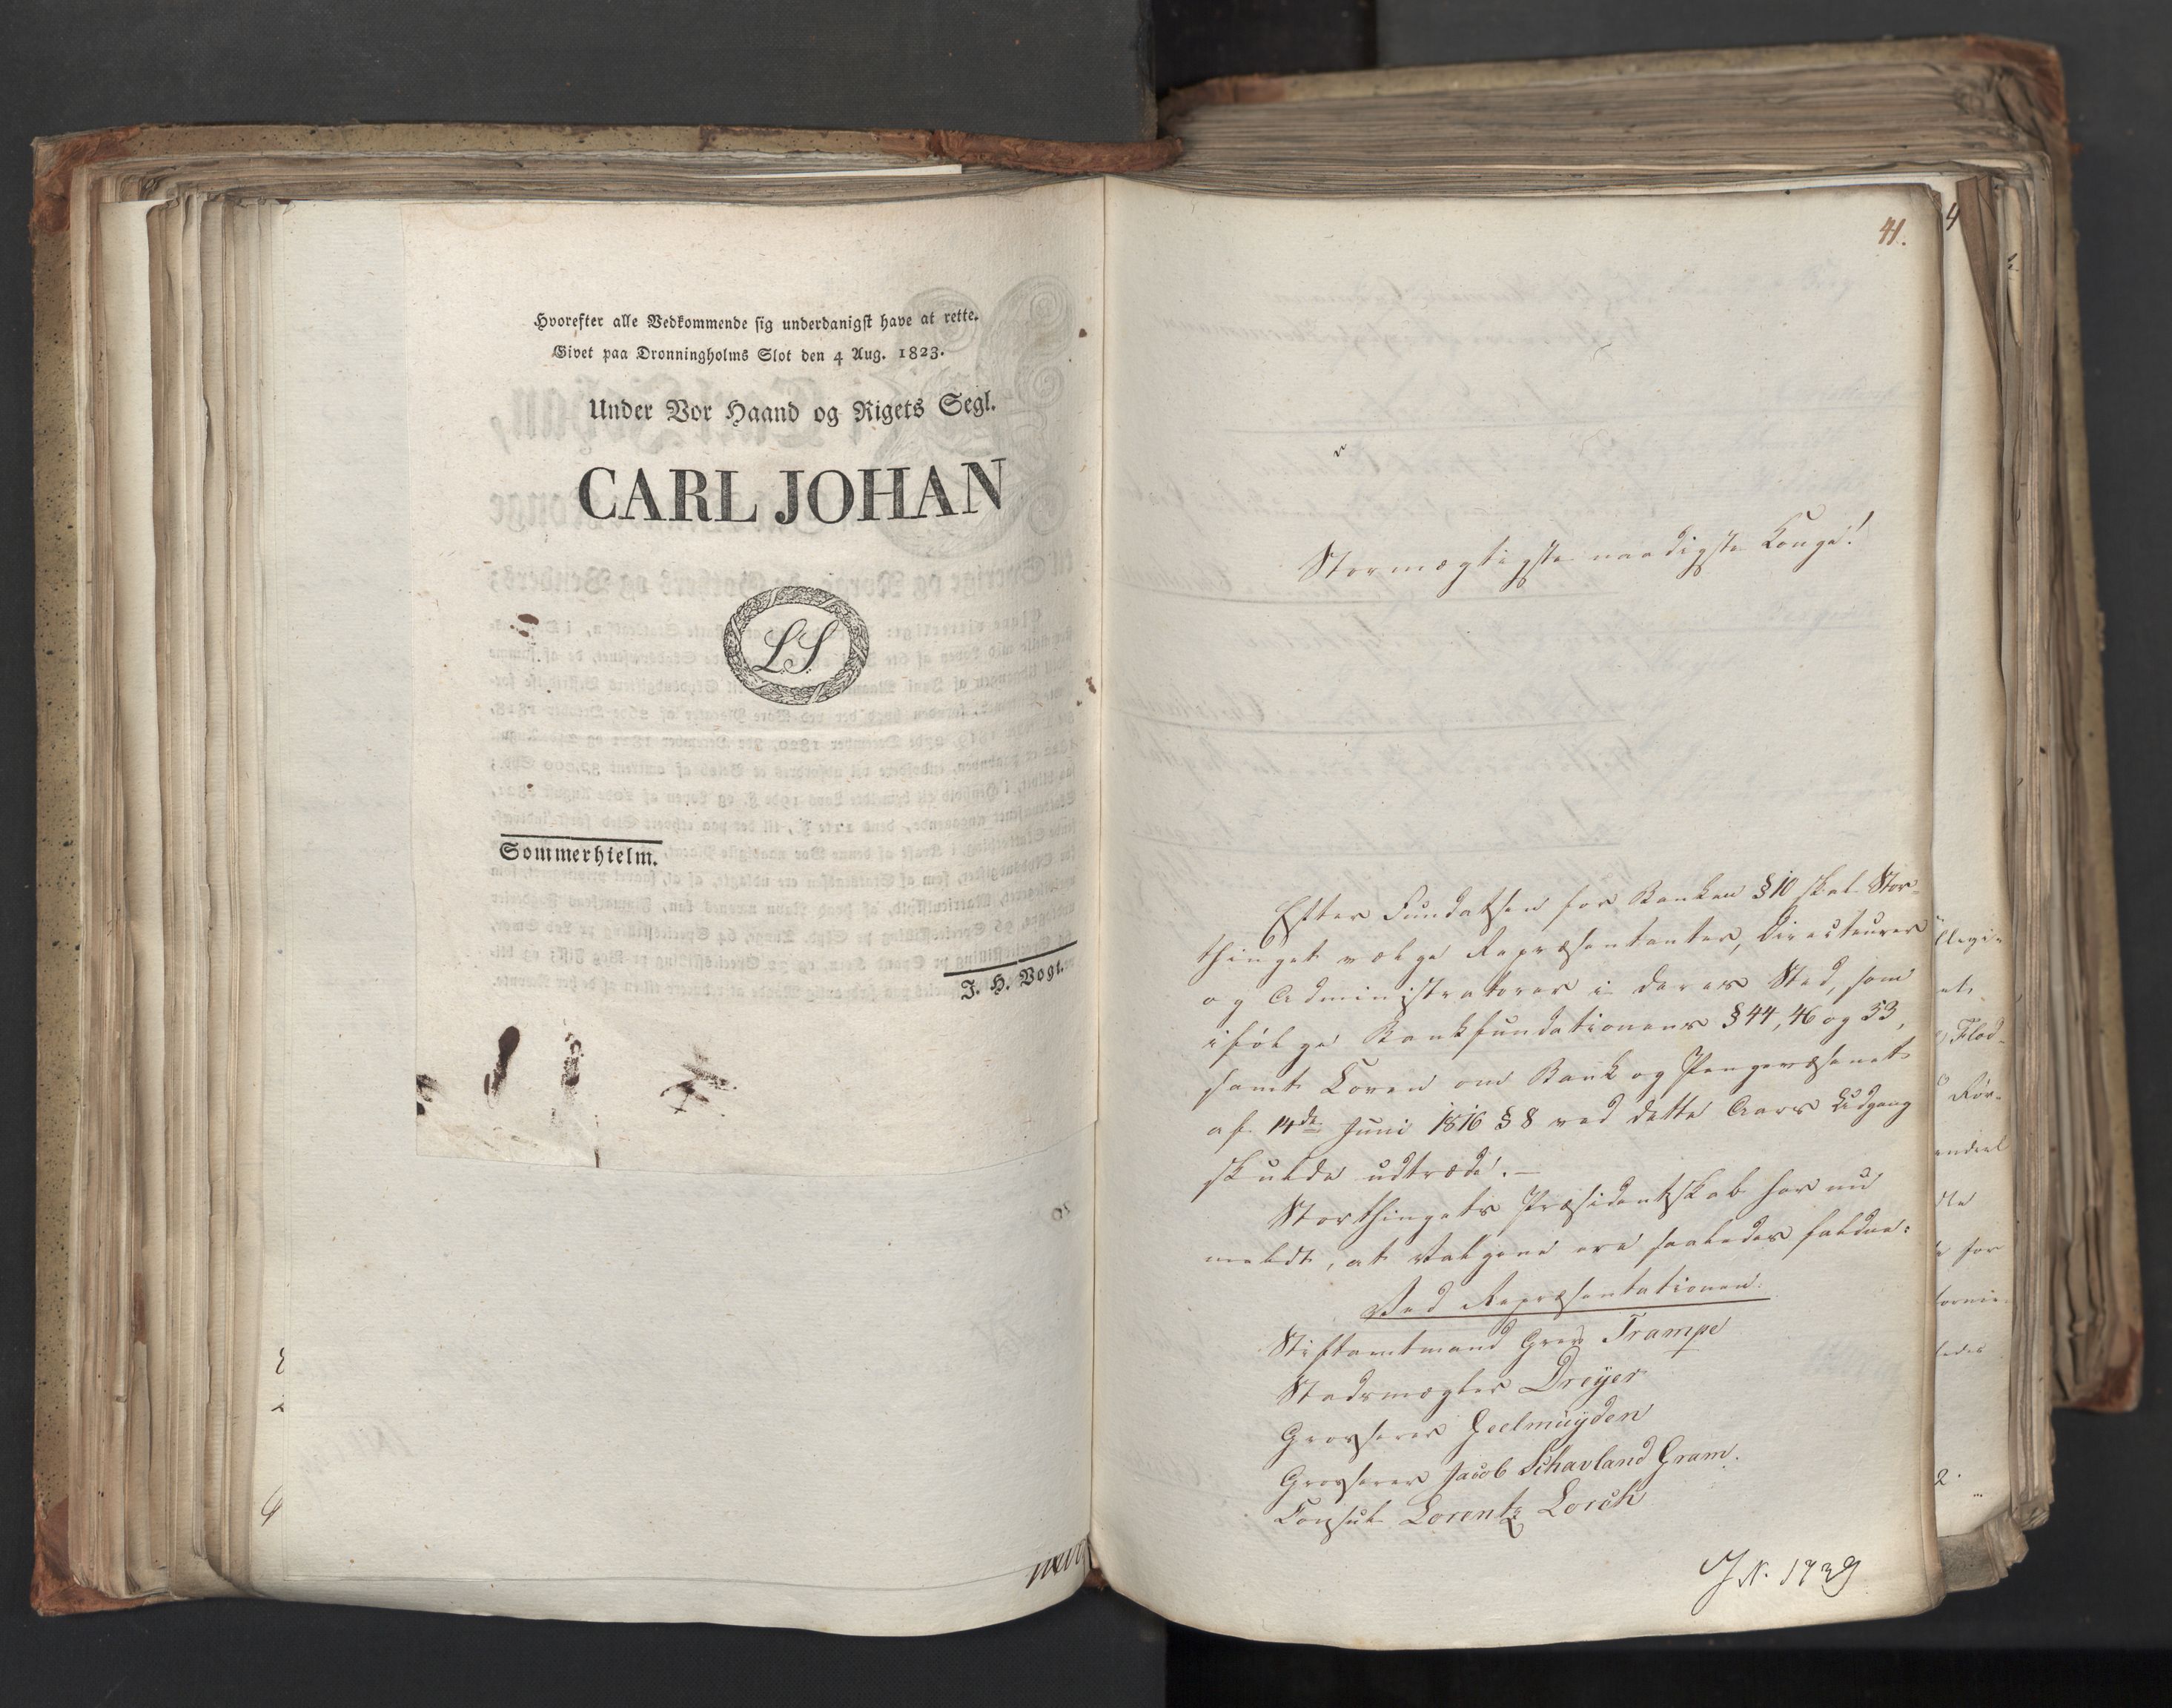 Hvorefter alle Vedkommende sig underdanigst have at rette.
Givet paa Dronningholms Slot den 4 Aug. 1823.
Under Vor Haand og Rigets Segl.
CARL JOHAN
L.S.
Sommerhielm.
J. H. Vogt.
41.
Stormægtigste naadigste Konge!
Efter Fundatsen for Banken § 10 skal Stor-
thinget vælge Repræsentanter, Directeurer
og Administratorer i deres Sted, som
ifølge Bankfundationens § 44, 46 og 53,
samt Loven om Bank og Pengevæsenet
af 14de Juni 1816 § 8 ved dette Aars Udgang
skulde udtræde. —
Storthingets Præsidentskab har nu
meldt, at Valgene ere saaledes faldne:
Ved Repræsentationen.
Stiftamtmand Grev Trampe
Stadsmægler Dreyer
Grosserer Geelmuyden
Grosserer Jacob Schavland Gram.
Consul Lorentz Lorck
J N. 1739